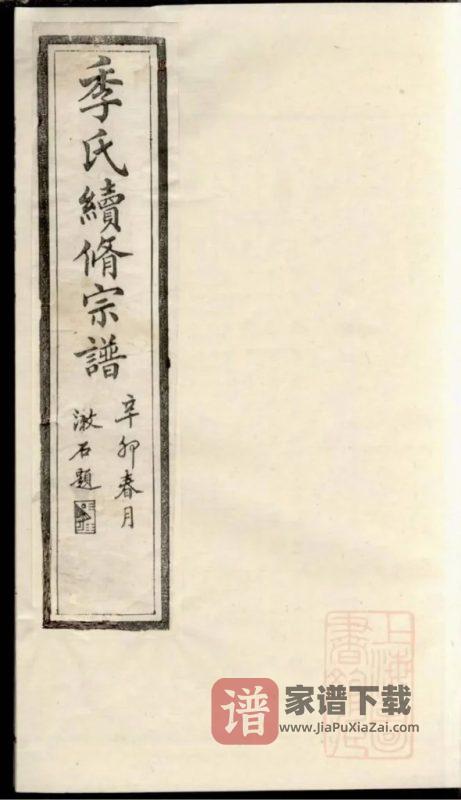 季氏續脩宗譜
辛卯春月
漱石題
上海圖書館藏
谱
家谱下载
www.JiaPuXiaZai.com